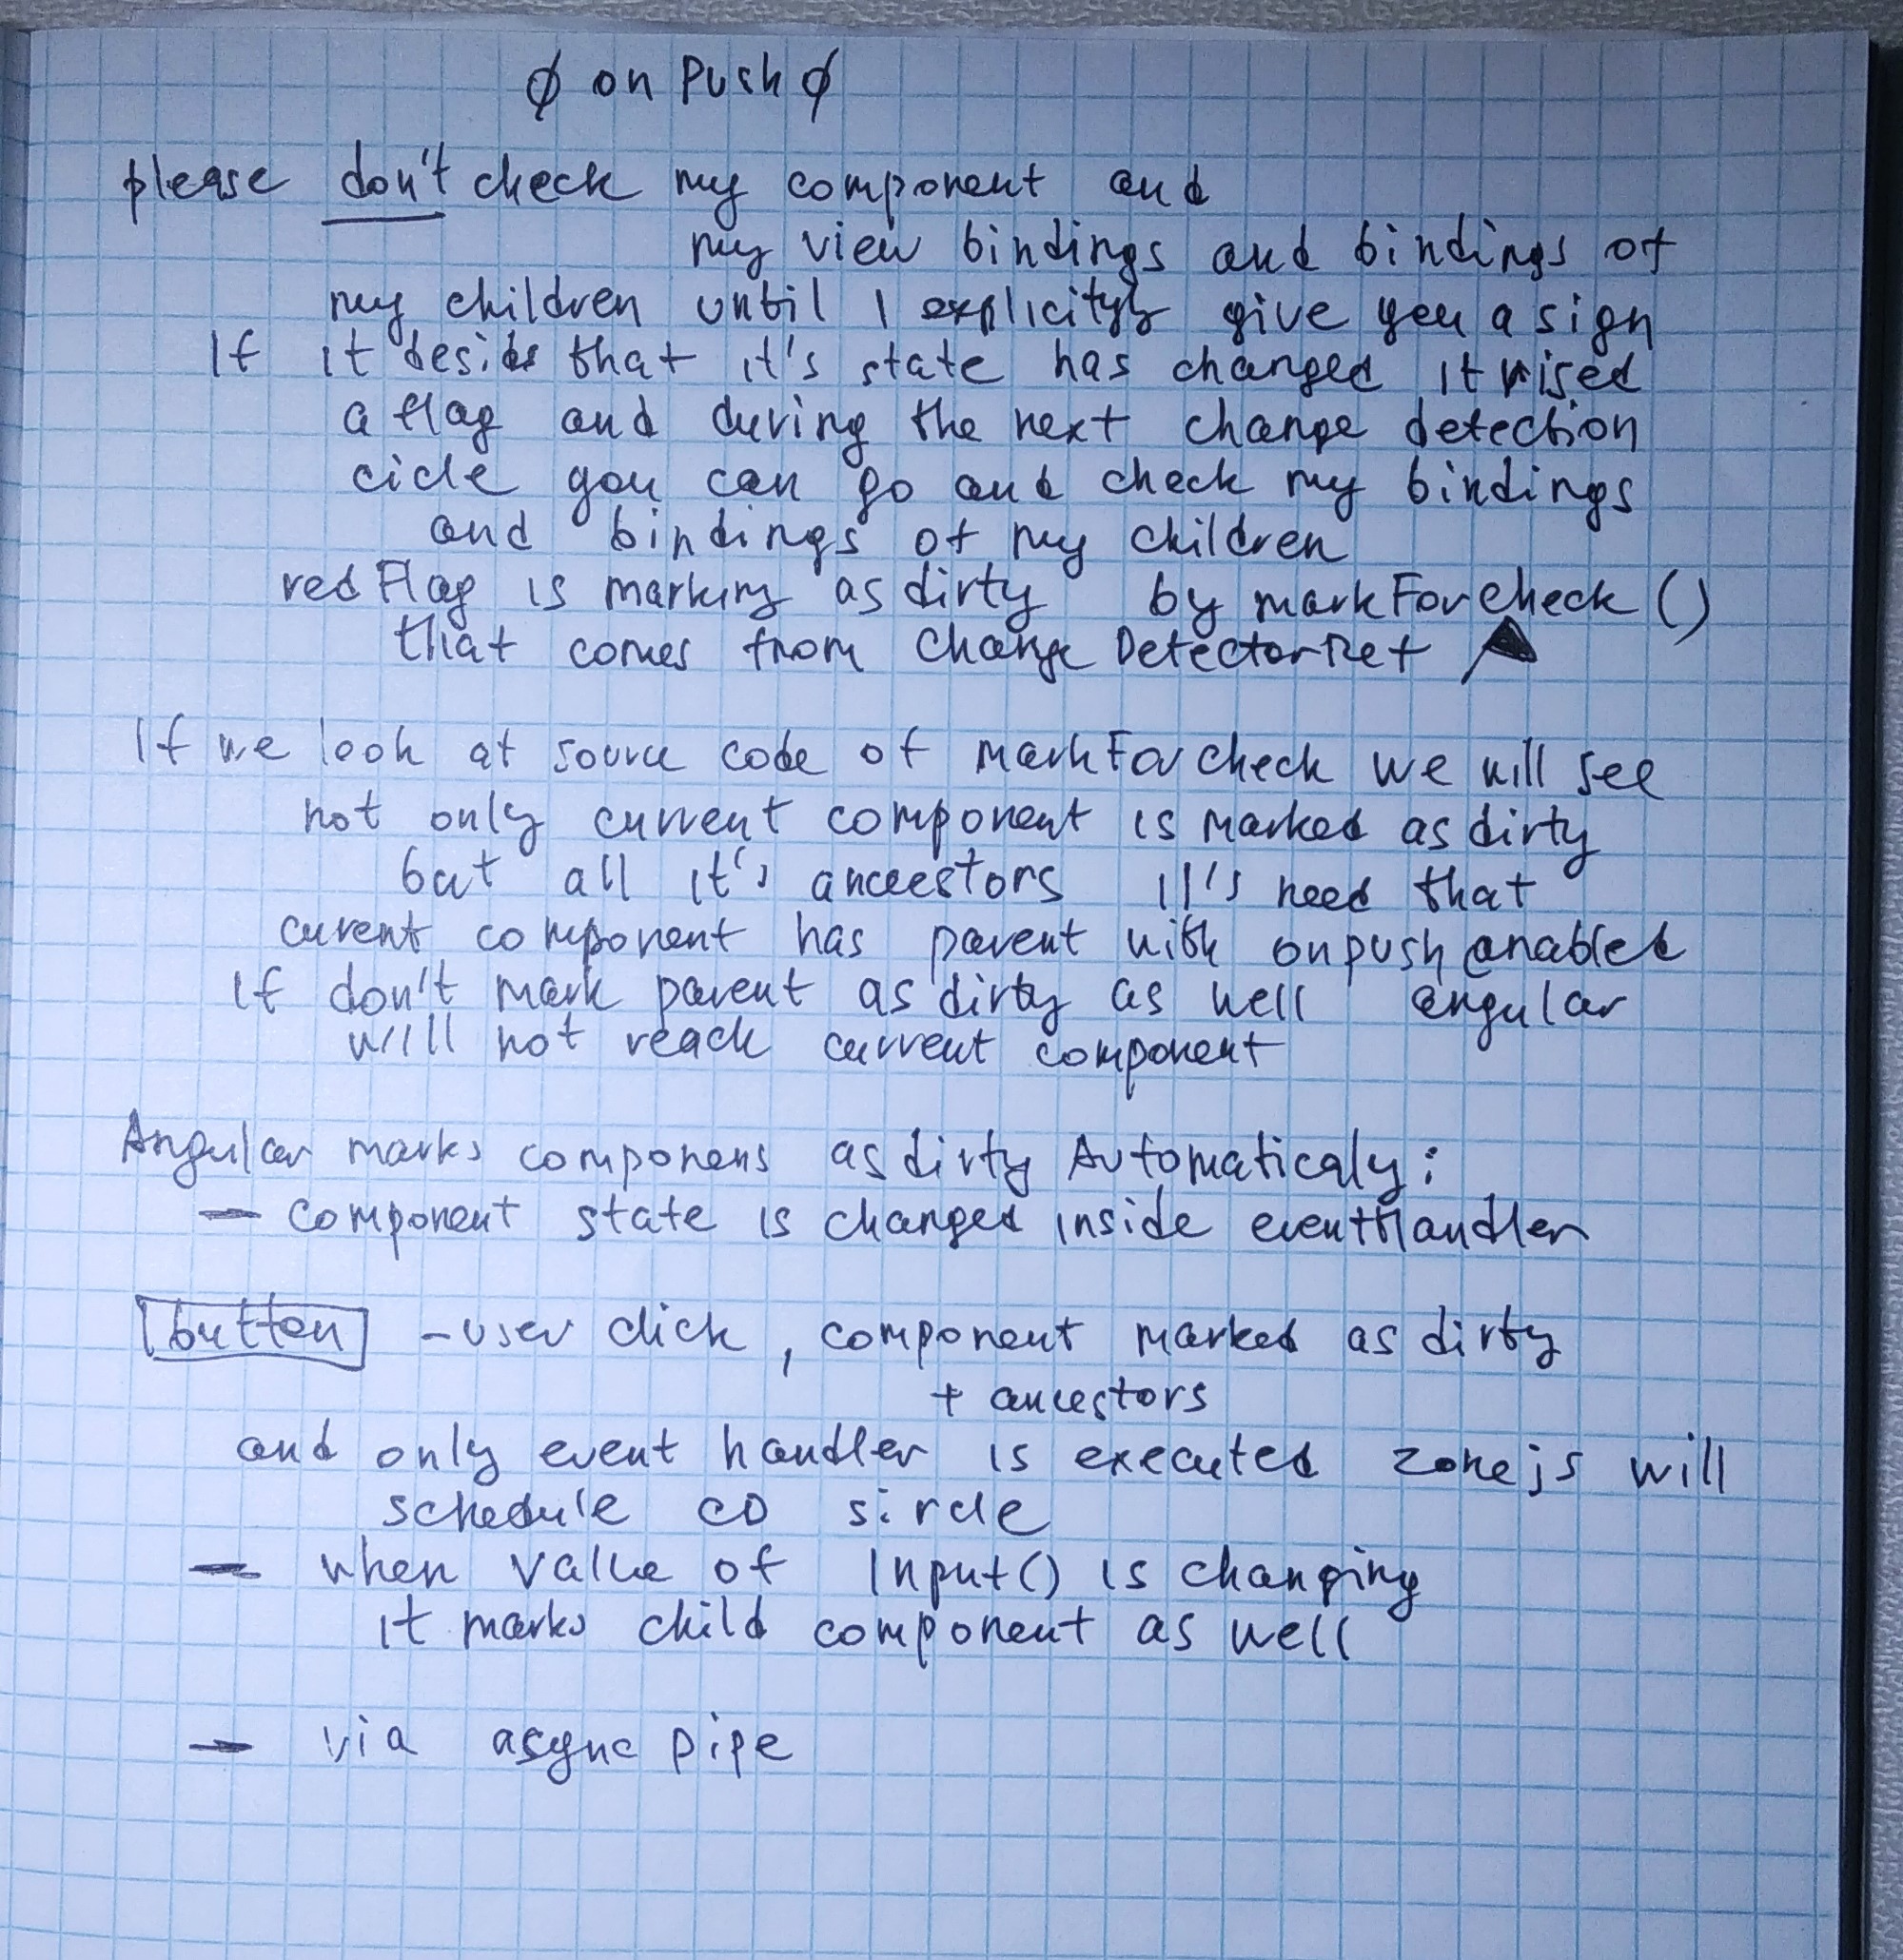 ∅ on Push ∅
please don't check my component and
my view bindings and bindings of
my children until I explicityly give you a sign
If it desides that it's state has changed it rised
a flag and during the next change detection
cicle you can go and check my bindings
and bindings of my children
red Flag is marking as dirty by markForCheck ()
that comes from Change DetectorRef
If we look at source code of markForCheck we will see
not only current component is marked as dirty
but all it's anceestors It's need that
curent component has parent with onpush enabled
If don't mark parent as dirty as well angular
will not reach current component
Angular marks componens as dirty Automaticaly:
— component state is changed inside eventHandler
button - user click, component marked as dirty
+ ancestors
and only event handler is executed zonejs will
schedule CD sircle
— when value of Input() is changing
it marks child component as well
— via async pipe